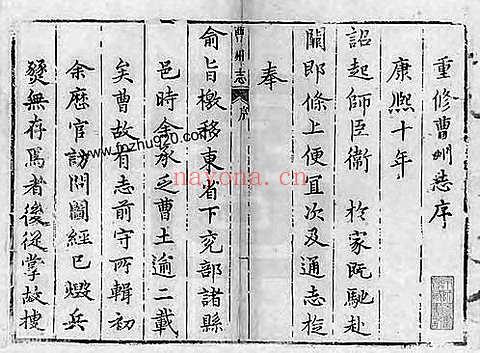 重修曹州志序
康熙十年
詔起師臣衛 於家既馳赴
闕即條上便宜次及通志旋
奉
曹州志
序
俞旨檄移東省下兖部諸縣
邑時余承乏曹土逾二載
矣曹故有志前守所輯初
余歴官訪問圖經已燬兵
燹無存焉者後從掌故搜
www.fozhu920.com
nayona.cn